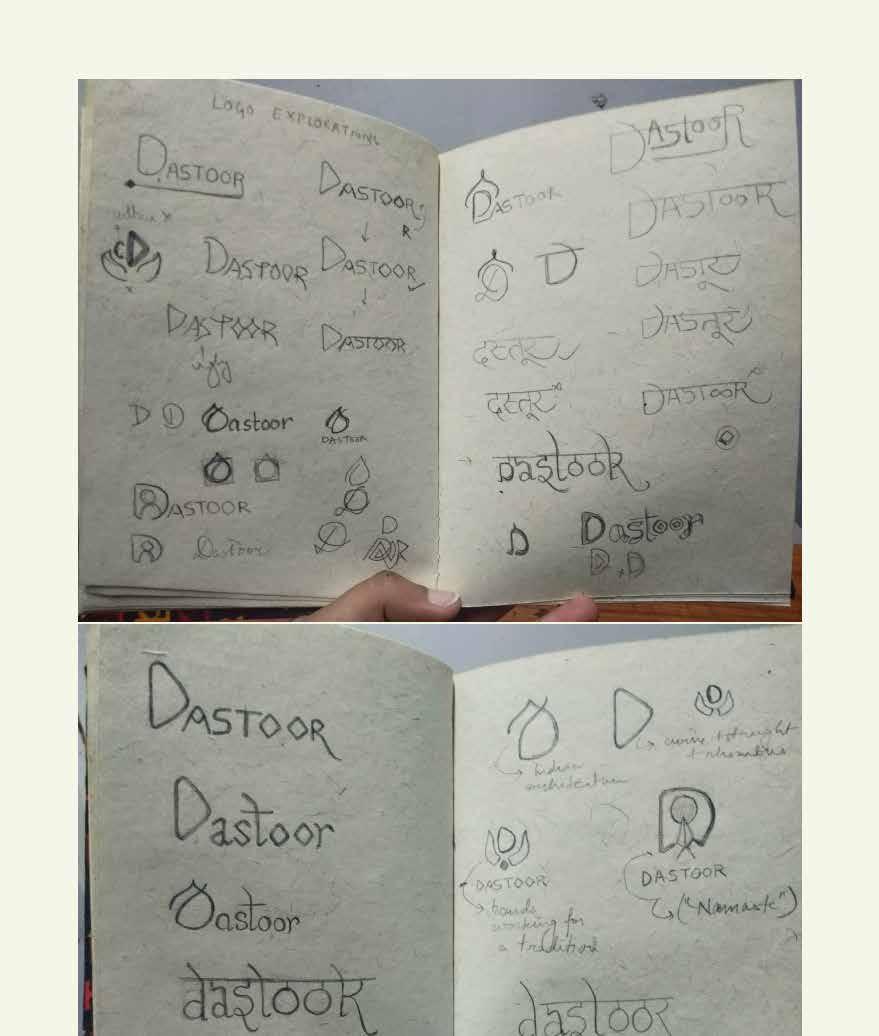 LOGO EXPLORATIONS
DASTOOR
DASTOOR
R
D
DASTOOR
DASTOOR
DASTOOR
DASTOOR
D D
Dastoor
DASTOOR
DASTOOR
Dastoor
D
DASTOOR
DASTOOR
DASTOOR
D
D
दस्तूर
दस्तूर
DASTOOR
Dastoor
D
Dastoor
D D
DASTOOR
Dastoor
Dastoor
dastoor
D
D
Indian
architecture
curve + straight
+ rhombus
DASTOOR
hands
working for
a tradition
DASTOOR
("Namaste")
dastoor